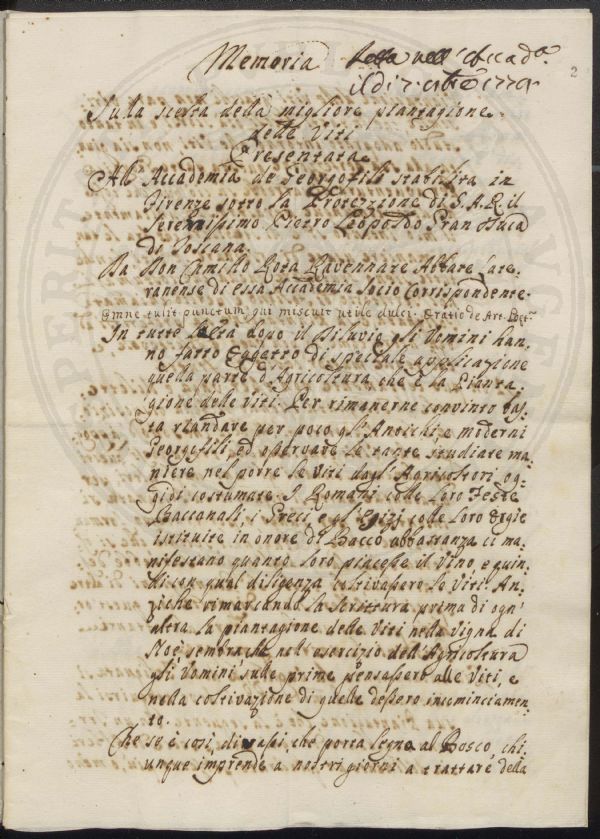 Memoria
Letta nell'Accad.a
il dì 7.
2
Sulla scelta della migliore piantagione
delle Viti
Presentata
All'Accademia de Georgofili stabilita in
Firenze sotto la Protezzione di S. A. R. il
Serenissimo Pietro Leopoldo Gran Duca
di Toscana.
Da Don Camillo Rota Ravennate Abbate Late-
ranense di essa Accademia Socio Corrispondente.
Omne tulit punctum, qui miscuit utile dulci. Oratio de Art. Poet.
In tutte l'età dopo il Diluvio gli Uomini han-
no fatto oggetto di speciale applicazione
quella parte d'Agricoltura che è la Pianta-
gione delle Viti. Per rimanerne convinto bas-
ta riandare per poco gl'Antichi e moderni
Georgofili, ed osservare le tante studiate ma-
niere nel porre le Viti dagl'Agricoltori og-
gidì costumate. I Romani colle loro Feste
Baccanali, i Greci e gl'Egizi colle loro Orgie
istituite in onore di Bacco abbastanza ci ma-
nifestano quanto loro piacesse il Vino, e quin-
di con qual diligenza coltivassero le Viti. An-
ziche rimarcando la Scrittura prima di ogn'
altra la piantagione delle Viti nella Vigna di
Noè sembra che nell'esercizio dell'Agricoltura
gli Uomini sulle prime pensassero alle Viti, e
nella coltivazione di quelle dessero incominciamen-
to.
Che se è così, che porta legna al Bosco, chi
unque imprende a nostri giorni a trattare della